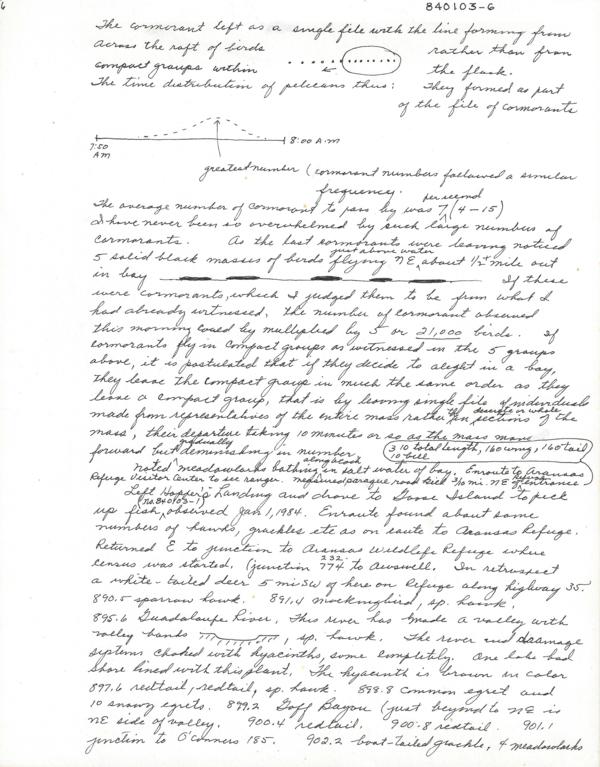 6
840103-6
The cormorant left as a single file with the line forming from
across the raft of birds rather than from
compact groups within the flock.
The time distribution of pelicans thus: They formed as part
of the file of cormorants
7:50 AM
8:00 A.M
greatest number (cormorant numbers followed a similar
frequency.
The average number of cormorant to pass by was 7 per second (4-15)
I have never been so overwhelmed by such large numbers of
cormorants. As the last cormorants were leaving noticed
5 solid black masses of birds flying just above water NE, about 1/2+ mile out
in bay If these
were cormorants, which I judged them to be from what I
had already witnessed, the number of cormorant observed
this morning could by multiplied by 5 or 21,000 birds. If
cormorants fly in compact groups as witnessed in the 5 groups
above, it is postulated that if they decide to alight in a bay,
they leave the compact group in much the same order as they
leave a compact group, that is by leaving single file of individuals
made from representatives of the entire mass rather than discrete or whole sections of the
mass, their departure taking 10 minutes or so as the mass moves
forward but gradually deminishing in number
310 total length, 160 wing, 160 tail
10 feet
Noted meadowlarks bathing along in salt water of bay. Enroute to Aransas
Refuge Visitor Center to see ranger. measured paraque road kill 3/10 mi. NE of Refuge entrance
Left Hopper's Landing and drove to Goose Island to pick
up fish (No. 840103-1) observed Jan 1, 1984. Enroute found about some
numbers of hawks, grackles etc as on route to Aransas Refuge.
Returned E to junction to Aransas Wildlife Refuge where
census was started. (junction 774 to Austwell. 232. In retrospect
a white-tailed deer 5 mi SW of here on Refuge along highway 35.
890.5 sparrow hawk. 891.4 mockingbird, sp. hawk.
895.6 Guadaloupe River. This river has made a valley with
valley banks , sp. hawk. The river and drainage
systems choked with hyacinths, some completely. One lake had
shore lined with this plant. The hyacinth is brown in color
897.6 redtail, redtail, sp. hawk. 898.8 common egret and
10 snowy egrets. 899.2 Goff Bayou (just beyond to NE is
NE side of valley. 900.4 redtail. 900.8 redtail. 901.1
junction to O'Conners 185. 902.2 boat-tailed grackle, 4 meadowlarks